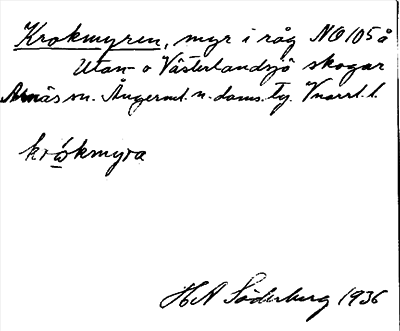 Krokmyren, myr i råg NO 105 å
Utan- o Västerlandsjö skogar
Arnäs sn. Ångerml. n. doms. tg. Vnorrl. l.
krωkmyra
H A Söderberg 1936